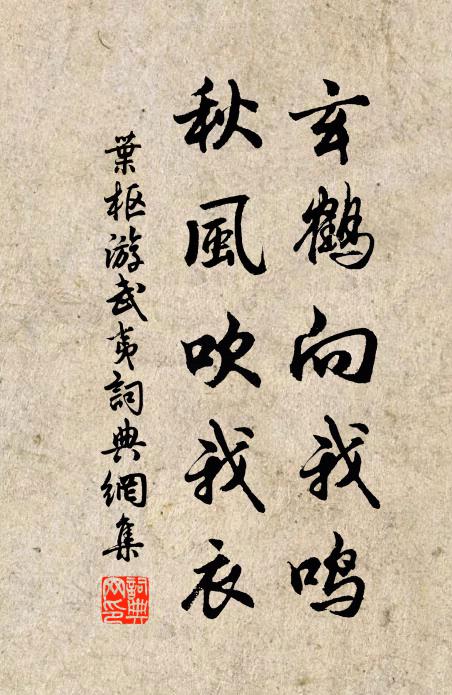 玄鶴向我鳴
秋風吹我衣
葉枢游武夷詞典網集
詞典
网印